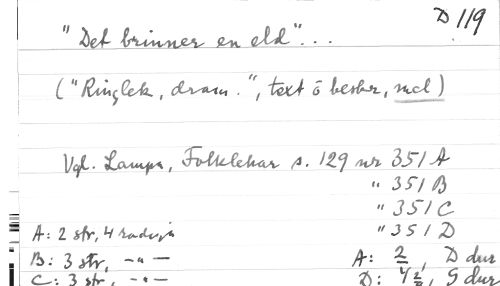 D 119
"Det brinner en eld"...
("Ringlek, dram.", text o beskr, mel)
Vgl. Lampa, Folklekar s. 129 nr 351 A
" 351 B
" 351 C
" 351 D
A: 2 str, 4 radiga
B: 3 str, -"- A: 2, D dur
C: 3 str, -"- D: G dur